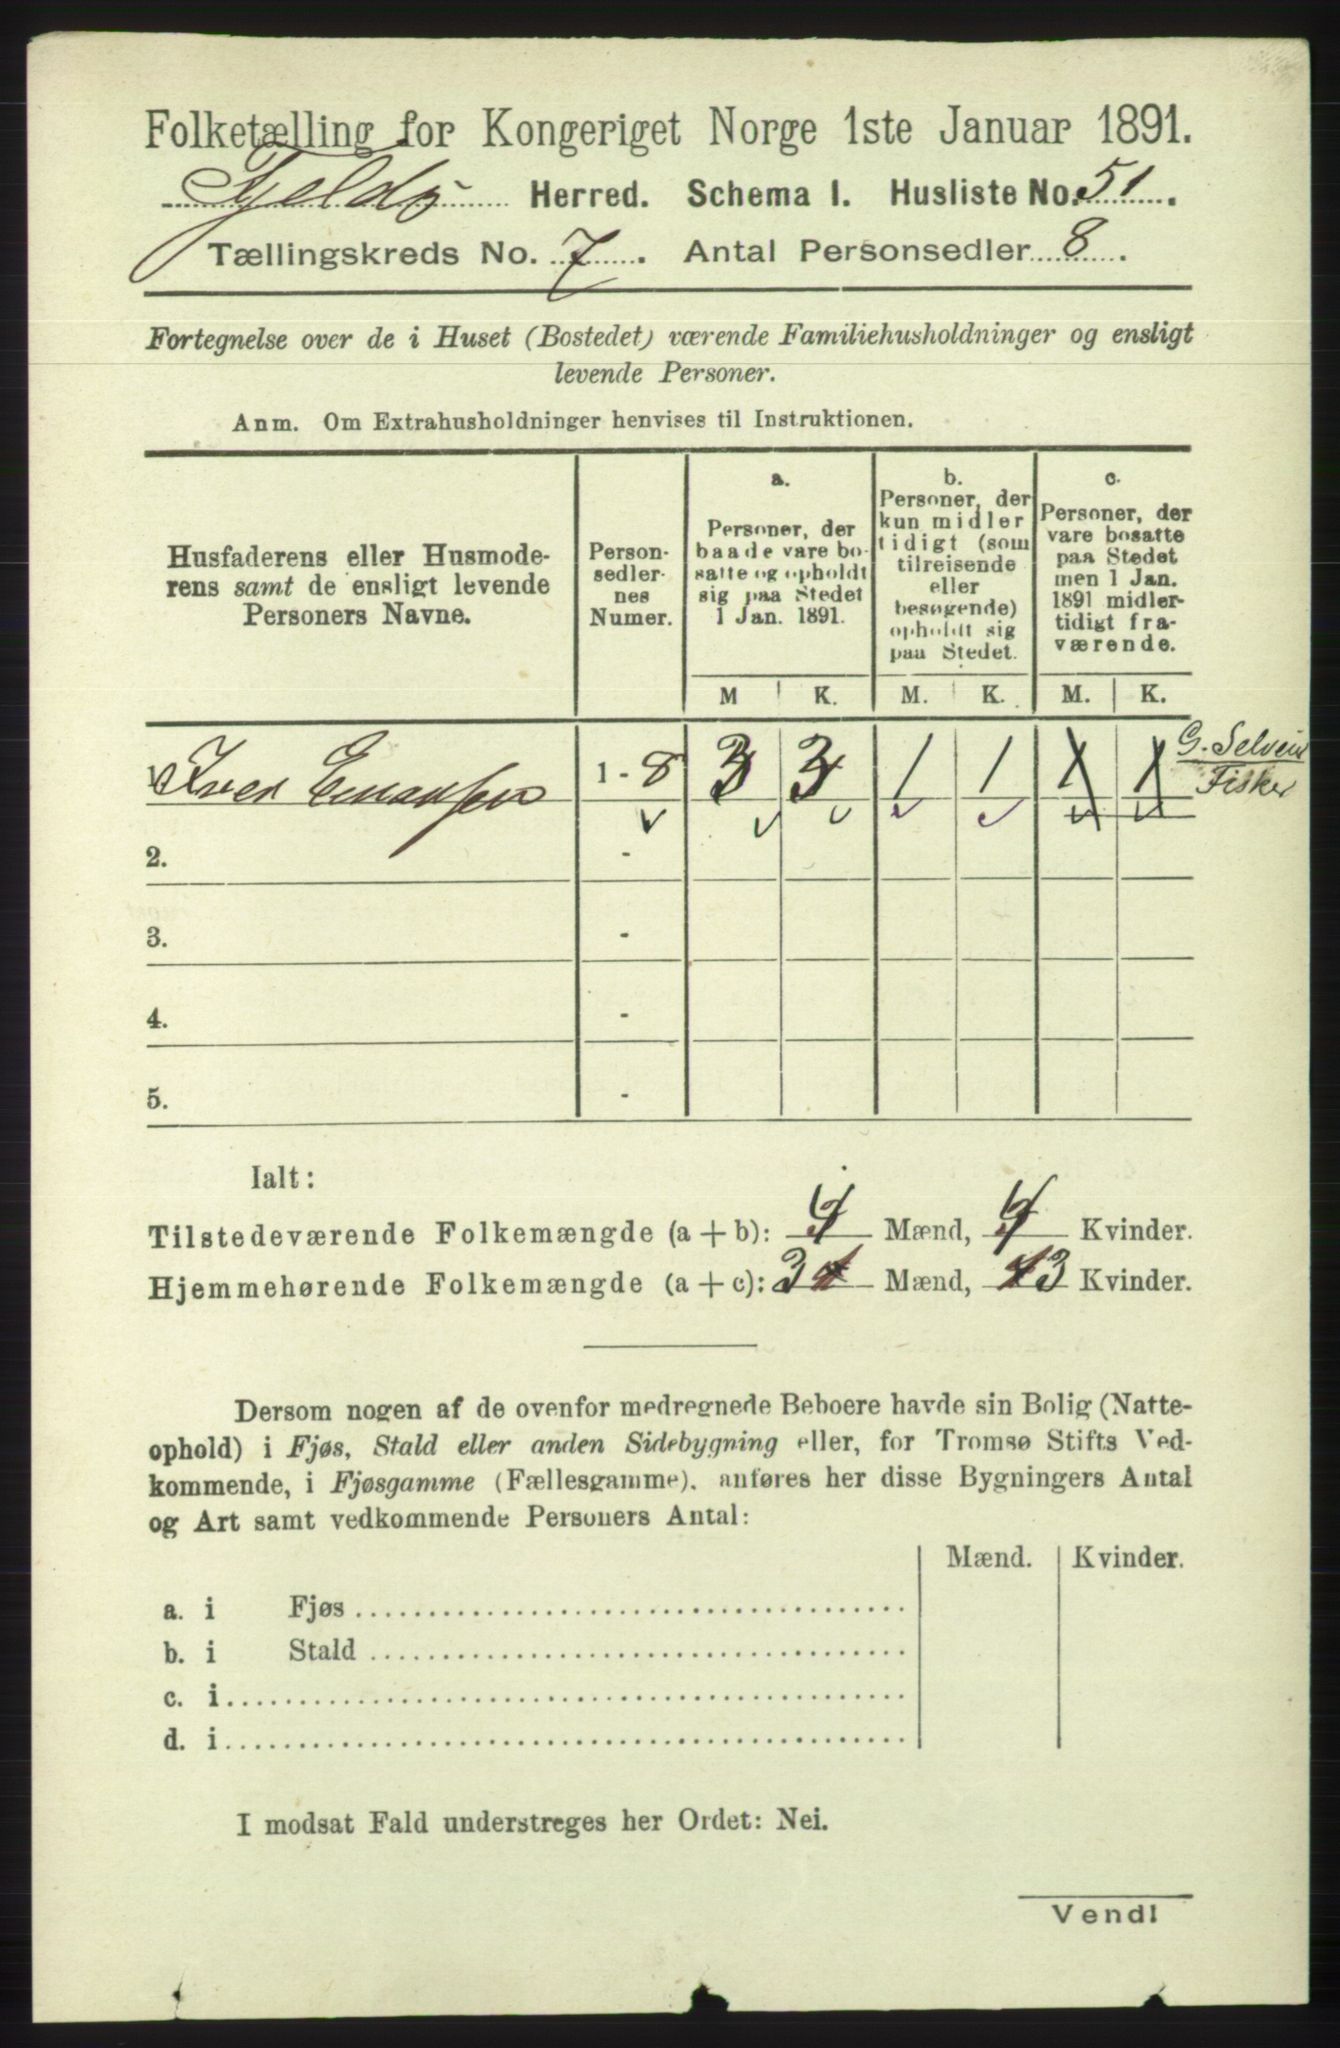 Folketælling for Kongeriget Norge 1ste Januar 1891.
Fjeldø Herred. Schema I. Husliste No. 51.
Tællingskreds No. 7. Antal Personsedler 8.
Fortegnelse over de i Huset (Bostedet) værende Familiehusholdninger og ensligt
levende Personer.
Anm. Om Extrahusholdninger henvises til Instruktionen.
Husfaderens eller Husmode-
rens samt de ensligt levende
Personers Navne.
Person-
sedler-
nes
Numer.
a.
Personer, der
baade vare bo-
satte og opholdt
sig paa Stedet
1 Jan. 1891.
b.
Personer, der
kun midler
tidigt (som
tilreisende
eller
besøgende)
opholdt sig
paa Stedet.
c.
Personer, der
vare bosatte
paa Stedet
men 1 Jan.
1891 midler-
tidigt fra-
værende.
M K. M. K. M. K.
Iver 1 - 8 3 3 1 1 1 1 G. Selveier
Fisker
2. -
3. -
4. -
5. -
Ialt:
Tilstedeværende Folkemængde (a + b): 4 Mænd, 4 Kvinder.
Hjemmehørende Folkemængde (a + c): 3 4 Mænd, 4 3 Kvinder.
Dersom nogen af de ovenfor medregnede Beboere havde sin Bolig (Natte-
ophold) i Fjøs, Stald eller anden Sidebygning eller, for Tromsø Stifts Ved-
kommende, i Fjøsgamme (Fællesgamme), anføres her disse Bygningers Antal
og Art samt vedkommende Personers Antal:
Mænd. Kvinder.
a. i Fjøs
b. i Stald
c. i
d. i
I modsat Fald understreges her Ordet: Nei.
Vend!